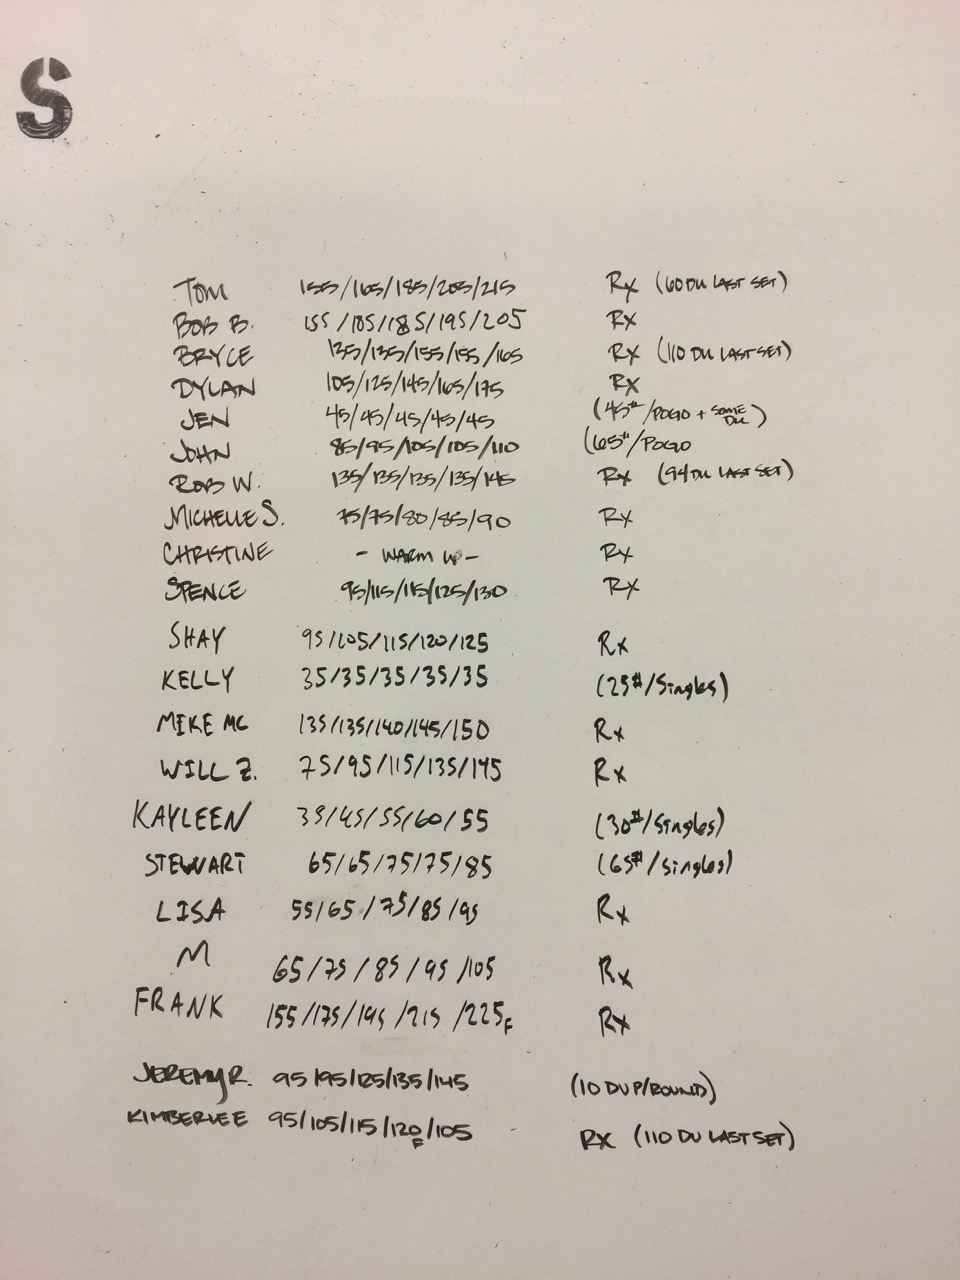 S
TOM 155/165/185/205/215 Rx (60 DU LAST SET)
BOB B. 155/185/185/195/205 Rx
BRYCE 135/135/155/155/165 Rx (110 DU LAST SET)
DYLAN 105/125/145/165/175 Rx
JEN 45/45/45/45/45 (45#/POGO + SOME DU)
JOHN 85/95/105/105/110 (65#/POGO
ROB W. 135/135/135/135/145 Rx (94 DU LAST SET)
MICHELLE S. 75/75/80/85/90 Rx
CHRISTINE - WARM UP - Rx
SPENCE 95/115/115/125/130 Rx
SHAY 95/105/115/120/125 Rx
KELLY 35/35/35/35/35 (25#/Singles)
MIKE MC 135/135/140/145/150 Rx
WILL Z. 75/95/115/135/145 Rx
KAYLEEN 35/45/55/60/55 (30#/Singles)
STEWART 65/65/75/75/85 (65#/Singles)
LISA 55/65/75/85/95 Rx
M 65/75/85/95/105 Rx
FRANK 155/175/195/215/225F Rx
JEREMY R. 95/95/125/135/145 (10 DU P/ROUND)
KIMBERLEE 95/105/115/120F/105 RX (110 DU LAST SET)